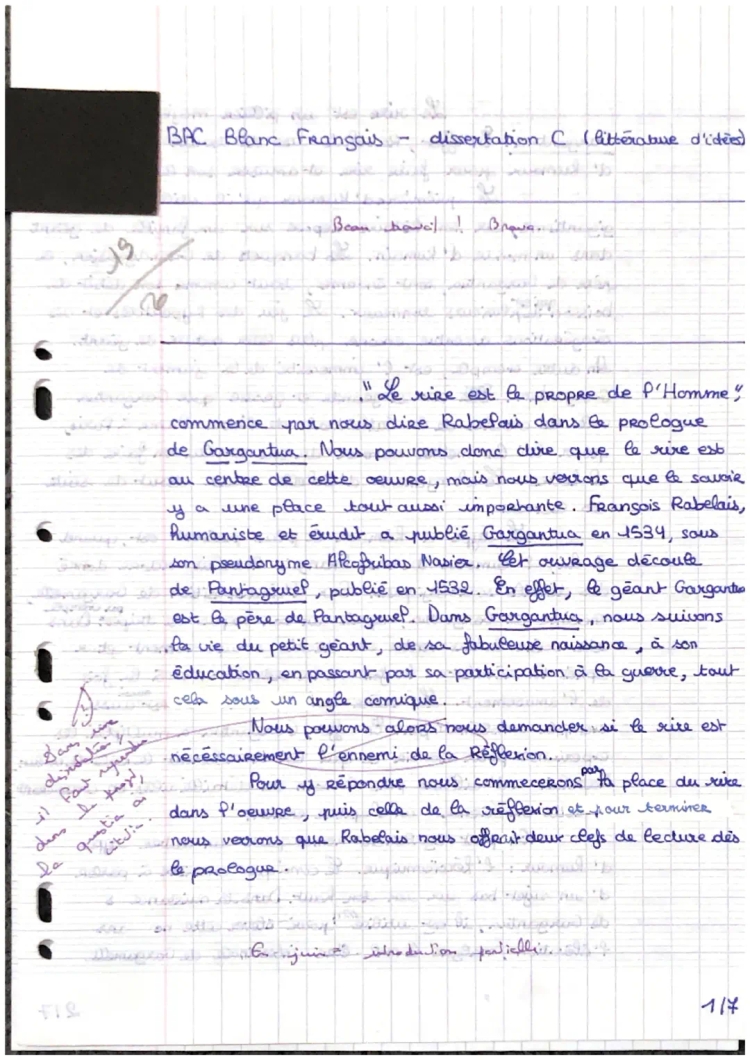 BAC Blanc Français - dissertation C (littérature d'idées)
Beau travail ! Bravo.
19/20
"Le rire est le propre de l'Homme",
commence par nous dire Rabelais dans le prologue
de Gargantua. Nous pouvons donc dire que le rire est
au centre de cette oeuvre, mais nous verrons que le savoir
y a une place tout aussi importante. François Rabelais,
humaniste et érudit a publié Gargantua en 1534, sous
son pseudonyme Alcofribas Nasier. Cet ouvrage découle
de Pantagruel, publié en 1532. En effet, le géant Gargantua
est le père de Pantagruel. Dans Gargantua, nous suivons
la vie du petit géant, de sa fabuleuse naissance, à son
éducation, en passant par sa participation à la guerre, tout
cela sous un angle comique.
Nous pouvons alors nous demander si le rire est
nécéssairement l'ennemi de la Réflexion.
Pour y répondre nous commecerons par la place du rire
dans l'oeuvre, puis celle de la réflexion et pour terminer
nous verrons que Rabelais nous offrait deux clefs de lecture dès
le prologue.
dans le
la
En juin = introduction
1/7